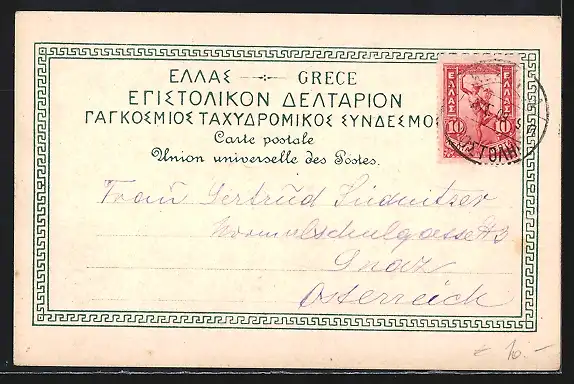 ΕΛΛΑΣ GRECE
ΕΠΙΣΤΟΛΙΚΟΝ ΔΕΛΤΑΡΙΟΝ
ΠΑΓΚΟΣΜΙΟΣ ΤΑΧΥΔΡΟΜΙΚΟΣ ΣΥΝΔΕΣΜΟ
Carte postale
Union universelle des Postes.
ΕΛΛΑΣ ΕΛΛΑΣ
10 10
Frau Gertrud
Normalschulgasse 3
Graz
Österreich
10.-